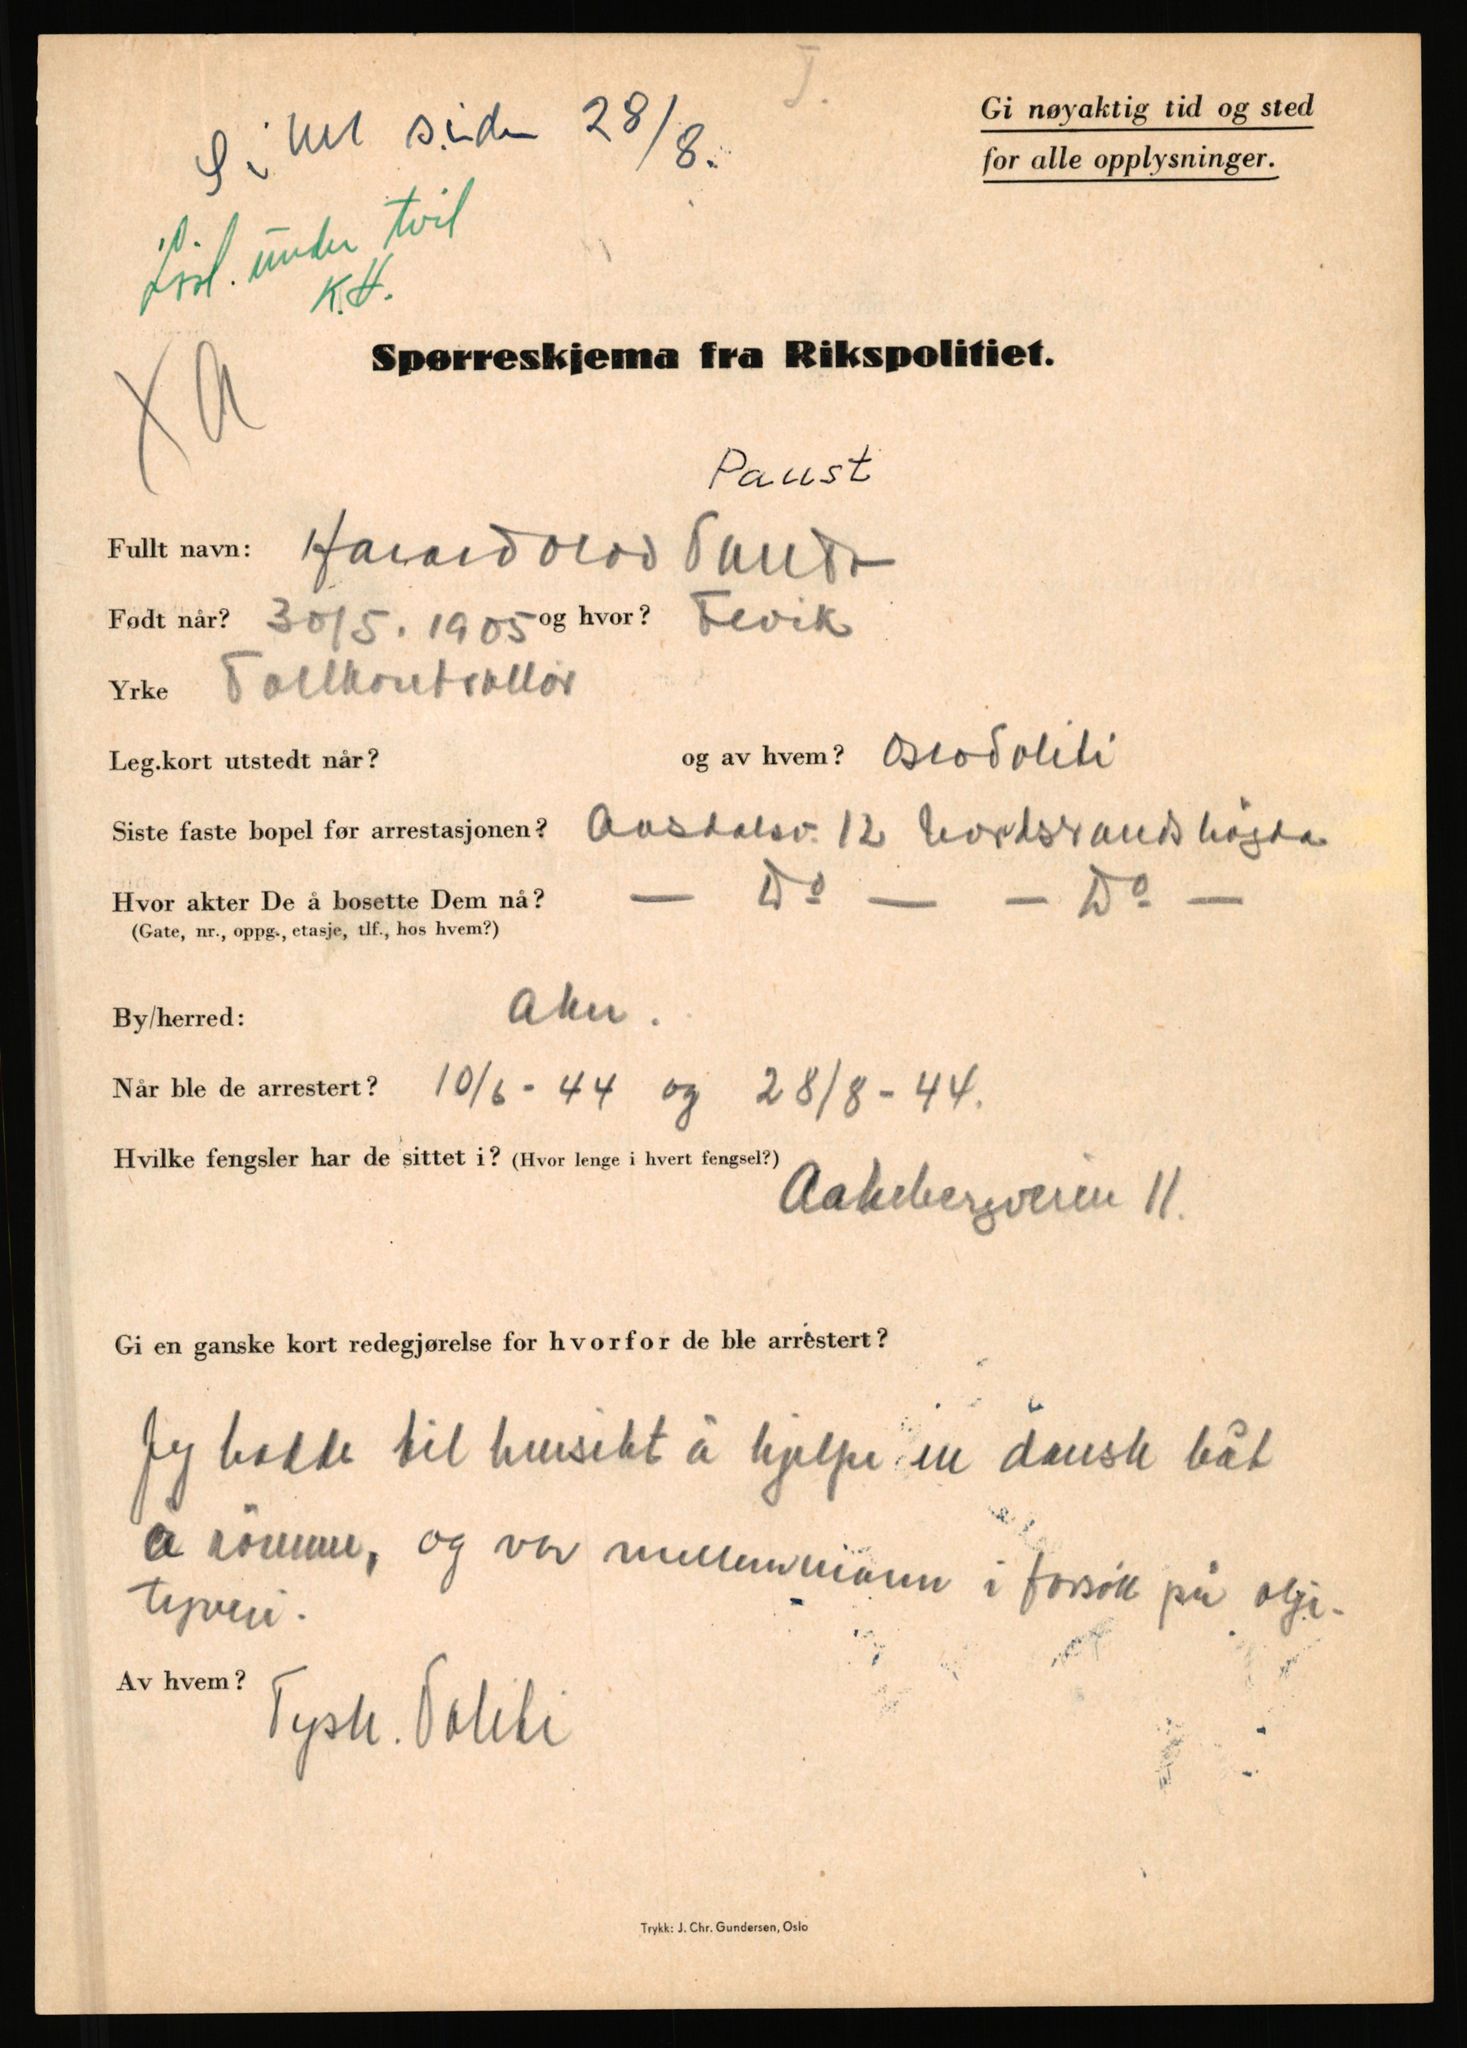 I.
Gi nøyaktig tid og sted
for alle opplysninger.
siden 28/8.
Løsl. under tvil
K.H.
X A
Spørreskjema fra Rikspolitiet.
Paust
Fullt navn: Harald Olav Paust
Født når? 30/5. 1905 og hvor? Fevik
Yrke Tollkontrollør
Leg.kort utstedt når? og av hvem? Oslo Politi
Siste faste bopel før arrestasjonen? 12 Nordstrandshøgda
Hvor akter De å bosette Dem nå? — Do — — Do —
(Gate, nr., oppg., etasje, tlf., hos hvem?)
By/herred: Aker.
Når ble de arrestert? 10/6 - 44 og 28/8 - 44.
Hvilke fengsler har de sittet i? (Hvor lenge i hvert fengsel?)
Aakebergveien 11.
Gi en ganske kort redegjørelse for hvorfor de ble arrestert?
Jeg hadde til hensikt å hjelpe en dansk båt
å römme, og var mellemmann i forsök på olje-
tyveri.
Av hvem? Tysk. Politi
Trykk: J. Chr. Gundersen, Oslo